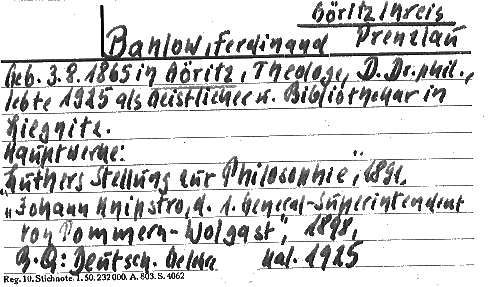 Göritz/Kreis
Bahlow, Ferdinand Prenzlau
Geb. 3.8.1865 in Göritz, Theologe, D. Dr. phil.,
lebte 1925 als Geistlicher u. Bibliothekar in
Liegnitz.
Hauptwerke:
Luthers Stellung zur Philosophie", 1891,
"Johann Knipstro, d. 1. General-Superintendent
von Pommern-Wolgast", 1898,
B.Q: Deutsch. Kal. 1925
Reg. 10. Stichnote. 1. 50. 232 000. A. 803. S. 4062